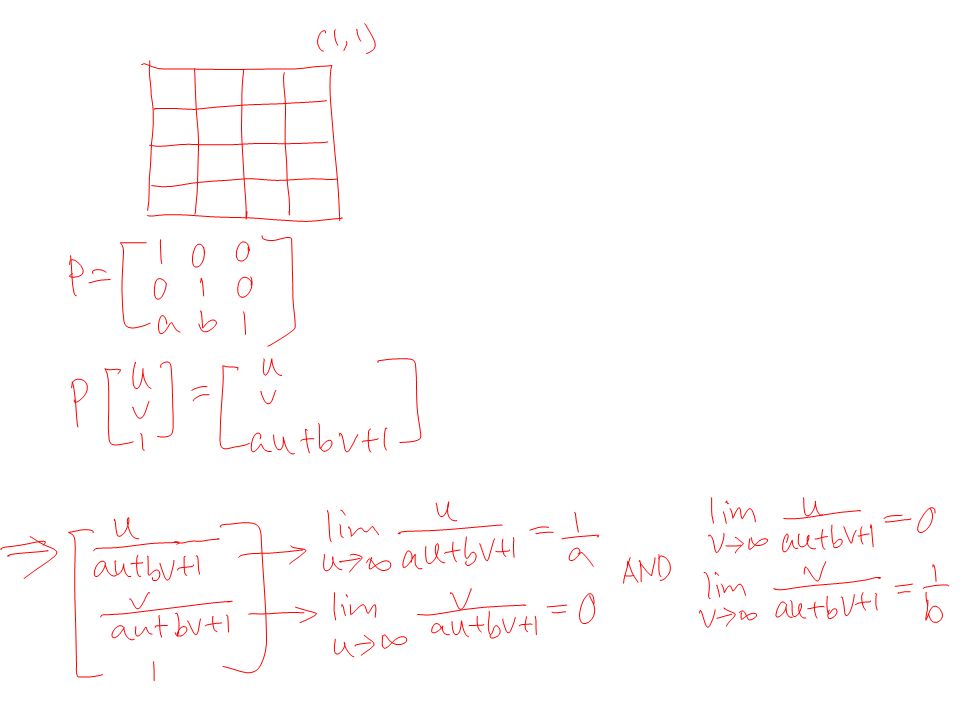 (1,1)
P = [ 1 0 0
0 1 0
a b 1 ]
P [ u
v
1 ] = [ u
v
au+bv+1 ]
⇒ [ u/(au+bv+1) → lim u→∞ u/(au+bv+1) = 1/a AND lim v→∞ u/(au+bv+1) = 0
v/(au+bv+1) → lim u→∞ v/(au+bv+1) = 0 lim v→∞ v/(au+bv+1) = 1/b
1 ]